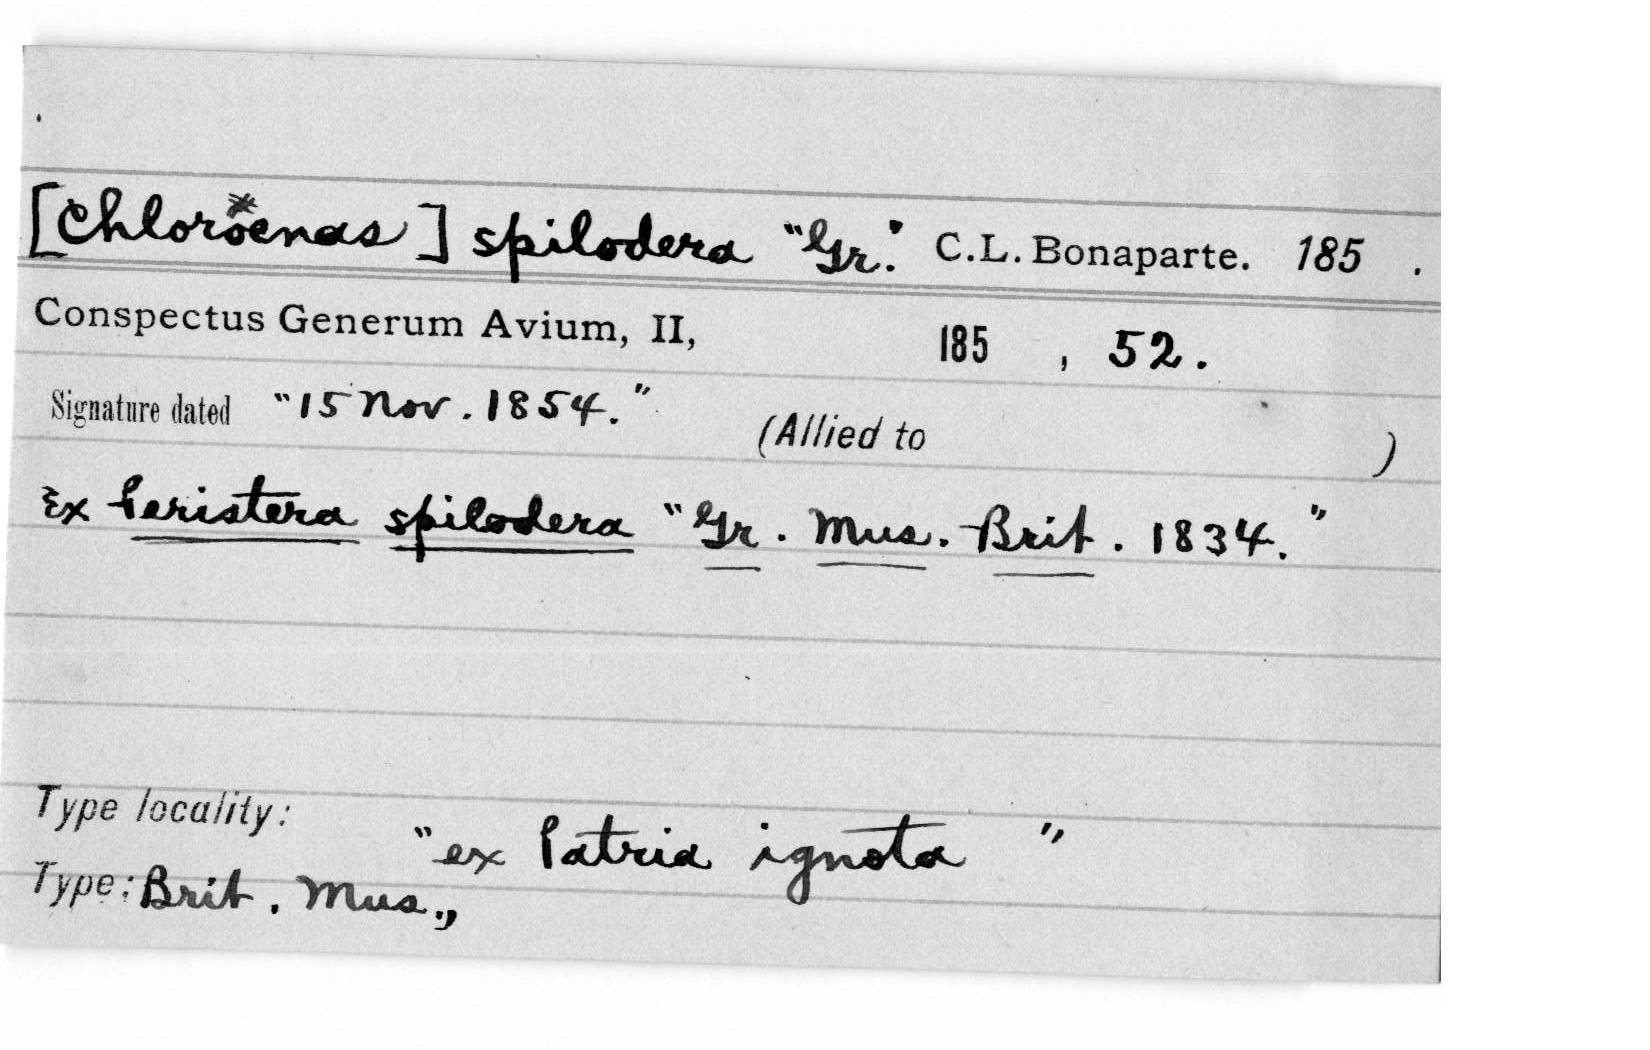 [Chloroenas] spilodera "Gr." C.L. Bonaparte. 185 .
Conspectus Generum Avium, II, 185 , 52.
Signature dated "15 Nov. 1854." (Allied to )
Ex Peristera spilodera "Gr. Mus. Brit. 1834."
Type locality: "ex Patria ignota "
Type: Brit. Mus.,